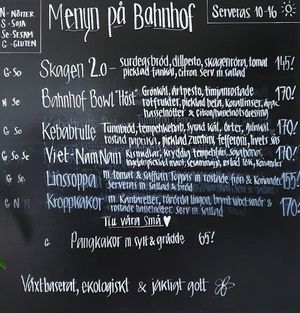 N - NÖTTER
S - SOJA
Se - SESAM
G - GLUTEN
Menyn på Bahnhof
Serveras 10-16
G So Skagen 2.0 - surdegsbröd, dillpesto, skagenröra, tomat 145!
picklad citron serv m sallad
N Se Bahnhof Bowl "Höst" Grönkål, ärtpesto, timjanrostade 170!
rotfrukter, picklad beta, tempehnötter & citron
G So Kebabrulle Tunnbröd, tempehkebab, syrad kål, örter, grönkål 170!
rostad paprika, picklad zucchini, fefferoni, lvets sås
G So Se Viet-Nam Nam Risnudlar, kryddig 170!
G So Linssoppa m. tomat & saffran Toppas m rostade frön & koriander 155!
Serveras m sallad & bröd
G N Kroppkakor m. Kantareller, rårörda lingon, brynt växtsmör & 170!
rostade hasselnötter Serv m sallad
Till våra Små ♥
G Pangkakor m sylt & grädde 65!
Växtbaserat, ekologiskt & jäkligt gott